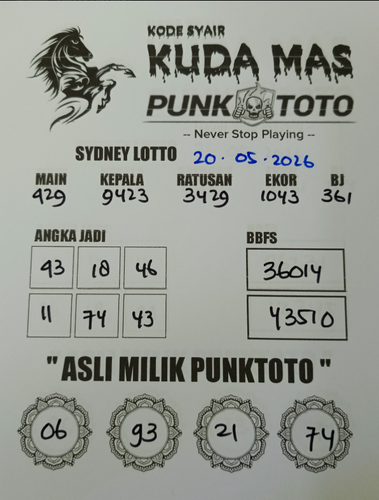 KODE SYAIR
KUDA MAS
PUNK TOTO
-- Never Stop Playing --
SYDNEY LOTTO 20.05.2026
MAIN KEPALA RATUSAN EKOR BJ
429 9423 3429 1043 361
ANGKA JADI BBFS
93 18 46 36014
11 74 43 43510
" ASLI MILIK PUNKTOTO "
06 93 21 74